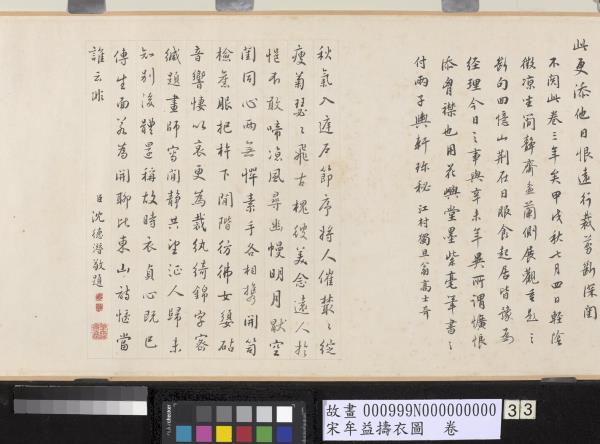 此更添他日恨遠行裁萬斷深閨
不閱此卷三年矣甲戌秋七月四日輕陰
微涼坐簡靜齋盆蘭側展觀重題二
斷句回憶山荆在日服食起居皆豫為
經理今日之事與辛未年異所謂爐恨
添胷襟也用花興堂墨紫毫筆書之
付兩子輿軒珎秘江村獨旦翁高士奇
秋氣入庭戶節序將人催叢叢綻
瘦菊瑟瑟飛古槐彼美念遠人於
悒不敢啼涼風尋幽幔明月獣空
閨同心兩無憚素手各相攜開笥
檢舊服把杵下閒階彷彿女嬃砧
音響悽以哀更為裁紈綺錦字密
緘題畫師寫閒靜共望征人歸未
知別後體還稱故時衣貞心既已
傳生面若為開聊比東山詩恒當
誰云非
臣沈德潛敬題
故畫 000999N000000000 33
宋牟益擣衣圖 卷